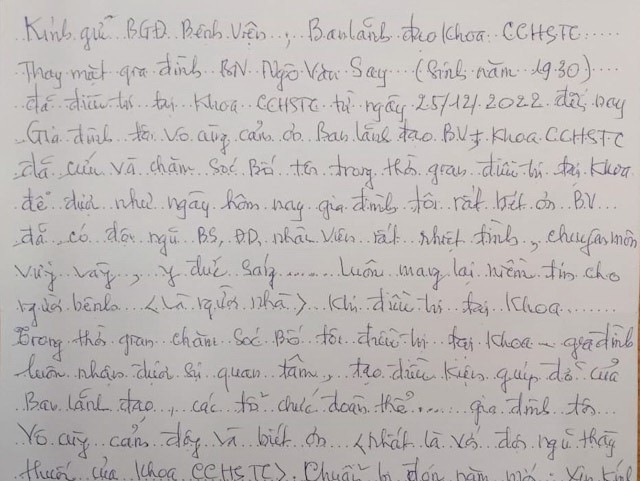 Kính gửi BGĐ Bệnh Viện, Ban lãnh đạo Khoa CCHSTC.....
Thay mặt gia đình BN Ngô Văn Say (Sinh năm 1930)....
đã điều trị tại Khoa CCHSTC từ ngày 25/12/2022 đến nay
Gia đình tôi vô cùng cảm ơn Ban lãnh đạo B.V+ Khoa CCHSTC
đã cứu và chăm sóc Bố tôi trong thời gian điều trị tại Khoa
để được như ngày hôm nay gia đình tôi rất biết ơn BV...
đã có đội ngũ BS, ĐD, nhân viên rất nhiệt tình, chuyên môn
vững vàng, y đức sáng...... luôn mang lại niềm tin cho
người bệnh <và người nhà> khi điều trị tại Khoa......
trong thời gian chăm sóc Bố tôi điều trị tại Khoa - gia đình
luôn nhận được sự quan tâm, tạo điều kiện giúp đỡ của
Ban lãnh đạo, các tổ chức đoàn thể..... gia đình tôi
vô cùng cảm động và biết ơn <nhất là với đội ngũ thầy
thuốc của Khoa CCHSTC> Chuẩn bị đón năm mới. Xin kính